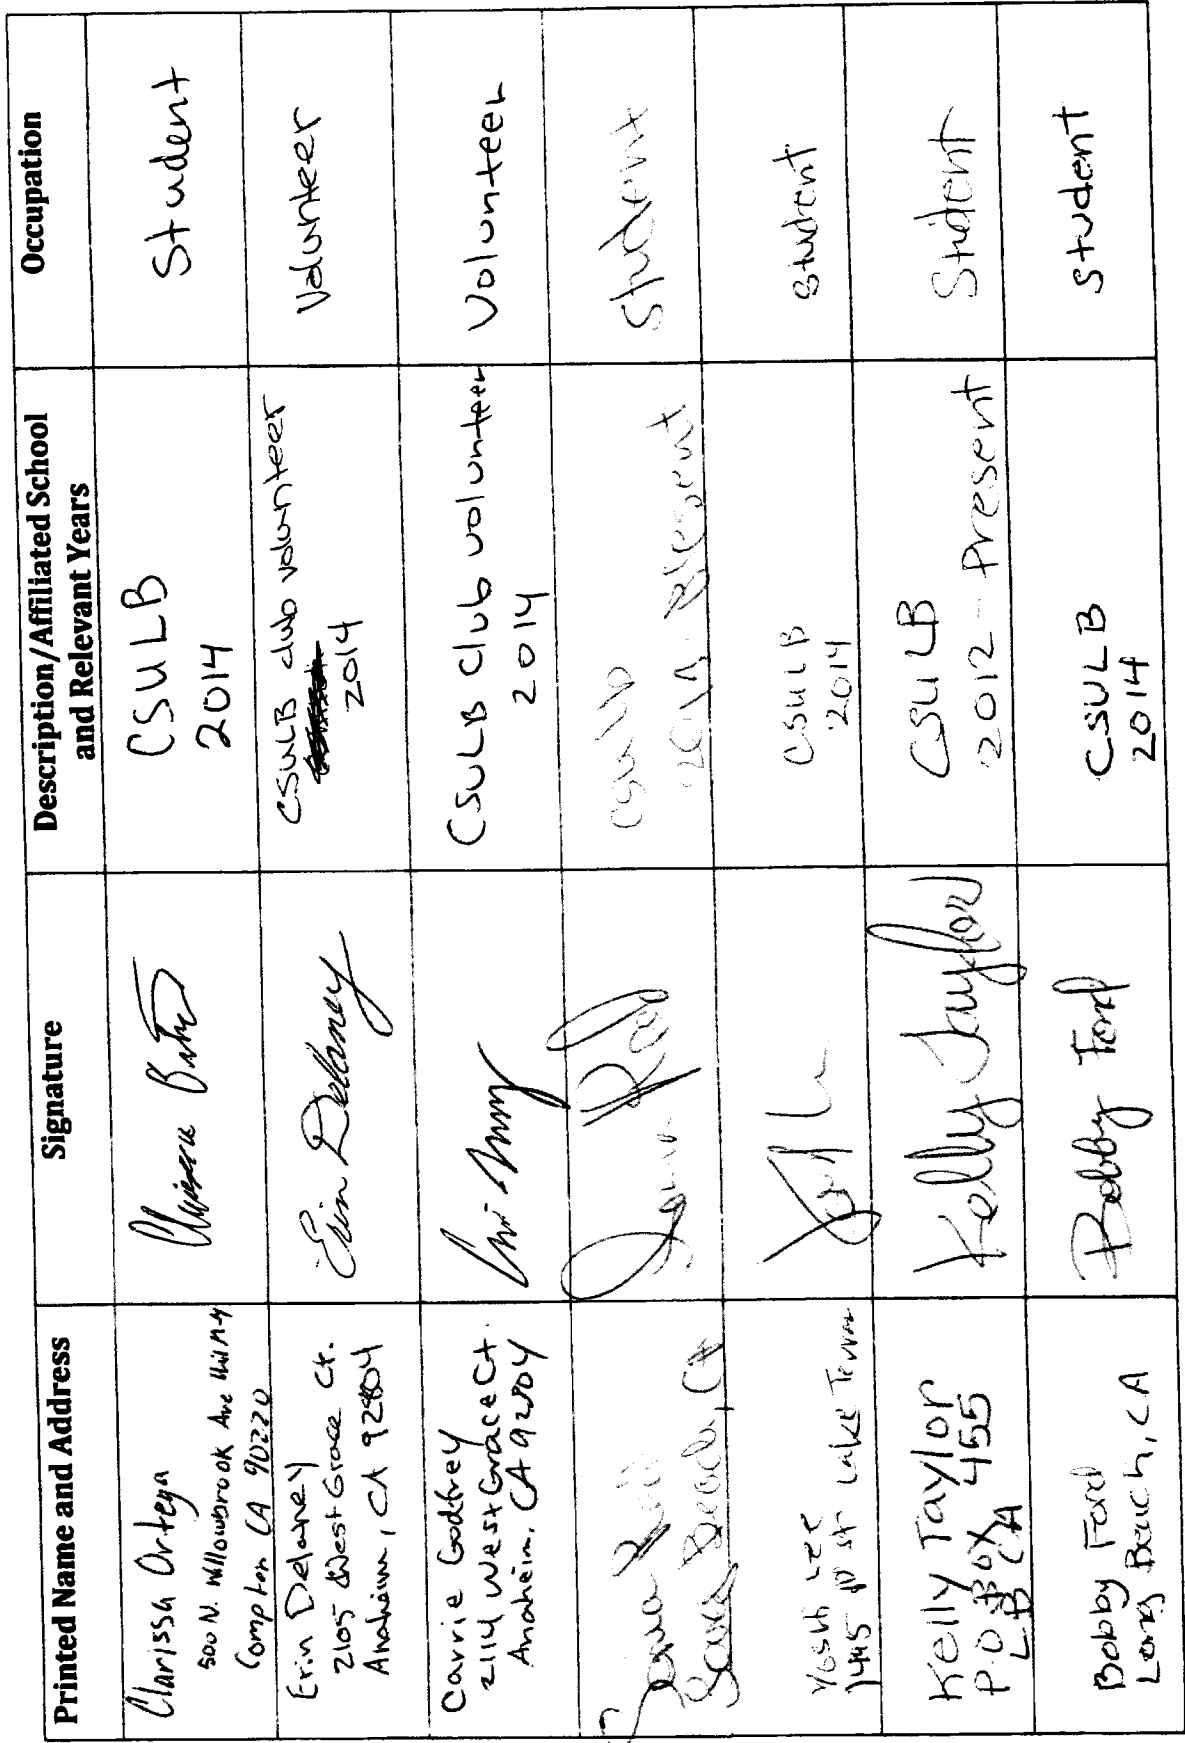 Printed Name and Address
Signature
Description/Affiliated School
and Relevant Years
Occupation
Clarissa Ortega
500 N. Willowbrook Ave
Compton CA 90220
CSULB
2014
Student
Erin Delaney
2105 West Grace Ct.
Anaheim, CA 92804
Erin Delaney
CSULB club volunteer
2014
Volunteer
Carrie Godfrey
2114 West Grace Ct.
Anaheim, CA 92804
CSULB Club volunteer
2014
Volunteer
Beach, CA
CSULB
Present
Student
Lee
1445 Lake
CSULB
2014
Student
Kelly Taylor
P.O. Box 455
LB CA
Kelly Taylor
CSULB
2012 - Present
Student
Bobby Ford
Long Beach, CA
Bobby Ford
CSULB
2014
Student